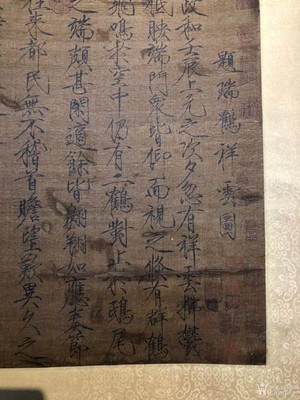 題瑞鶴祥雲圖
政和壬辰上元之次夕忽有祥雲拂鬱
低映端門眾皆仰而視之倏有群鶴
飛鳴於空中仍有二鶴對止於鴟尾
之端頗甚閑適餘皆翱翔如應奏節
往來都民無不稽首瞻望歎異久之